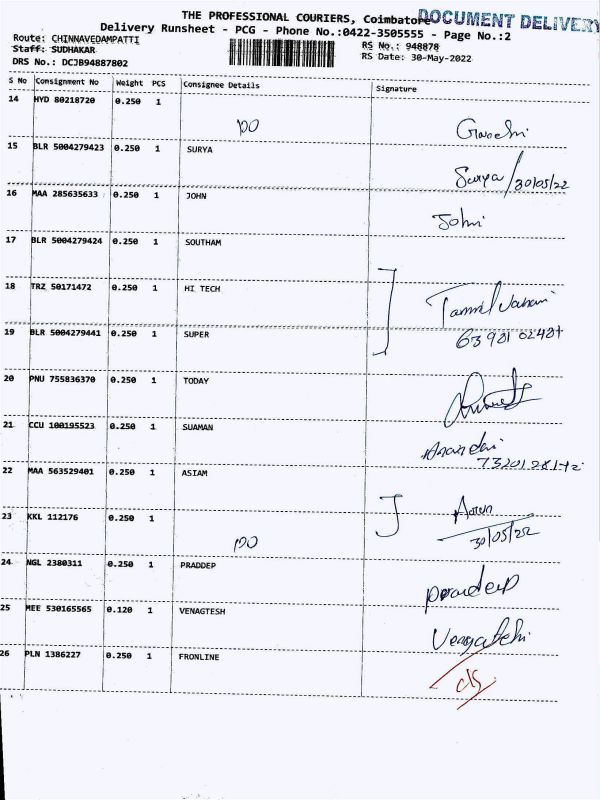 THE PROFESSIONAL COURIERS, Coimbatore
DOCUMENT DELIVERY
Delivery Runsheet - PCG - Phone No.:0422-3505555 - Page No.:2
Route: CHINNAVEDAMPATTI
RS No.: 948878
Staff: SUDHAKAR
RS Date: 30-May-2022
DRS No.: DCJB94887802
S No Consignment No Weight PCS Consignee Details Signature
14 HYD 80218720 0.250 1
15 BLR 5004279423 0.250 1 SURYA
Surya/30/05/22
16 MAA 285635633 0.250 1 JOHN
John
17 BLR 5004279424 0.250 1 SOUTHAM
18 TRZ 50171472 0.250 1 HI TECH
19 BLR 5004279441 0.250 1 SUPER
20 PNU 755836370 0.250 1 TODAY
21 CCU 100195523 0.250 1 SUAMAN
22 MAA 563529401 0.250 1 ASIAM
23 KKL 112176 0.250 1
30/05/22
24 NGL 2380311 0.250 1 PRADDEP
25 MEE 530165565 0.120 1 VENAGTESH
26 PLN 1386227 0.250 1 FRONLINE